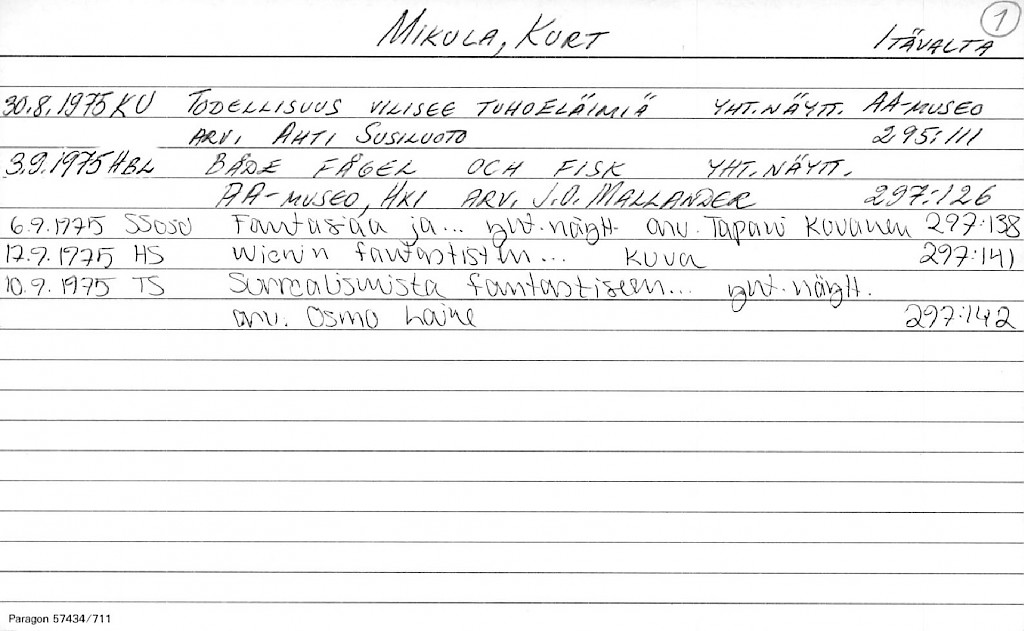 1
MIKULA, KURT ITÄVALTA
30.8.1975 KU TODELLISUUS VILISEE TUHOELÄIMIÄ YHT.NÄYTT. AA-MUSEO
ARV. AHTI SUSILUOTO 295:111
3.9.1975 HBL BÅDE FÅGEL OCH FISK YHT.NÄYTT.
AA-MUSEO, HKI ARV. J.O. MALLANDER 297:126
6.9.1975 SSosD Fantasiaa ja... yht.näytt. arv. Tapani Kovanen 297:138
17.9.1975 HS Wienin fantastisten... kuva 297:141
10.9.1975 TS Surrealismista fantastiseen... yht.näytt.
arv. Osmo Laine 297:142
Paragon 57434/711